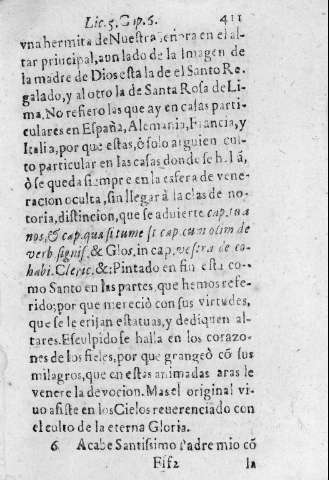 Lic. 5. Cap. 5. 411
vna hermita de Nuestra señora en el al-
tar principal, a un lado de la Imagen de
la madre de Dios esta la de el Santo Re-
galado, y al otro la de Santa Rosa de Li-
ma. No refiero las que ay en casas parti-
culares en España, Alemania, Francia, y
Italia, por que estas, ò solo arguien cul-
to particular en las casas donde se hallã,
ò se queda siempre en la esfera de vene-
racion oculta, sin llegar à la clas de no-
toria, distincion, que se aduierte cap. tua
nos, & cap. quasi tume si cap. cum olim de
verb. signif. & Glos. in cap. vestra de co-
habi. Cleric. &: Pintado en fin esta co-
mo Santo en las partes, que hemos refe-
rido; por que mereciò con sus virtudes,
que se le erijan estatuas, y dediquen al-
tares. Esculpido se halla en los corazo-
nes de los fieles, por que grangeò cõ sus
milagros, que en estas animadas aras le
venere la devocion. Mas el original vi-
uo asiste en los Cielos reuerenciado con
el culto de la eterna Gloria.
6. Acabe Santissimo Padre mio cõ
Fff2 la